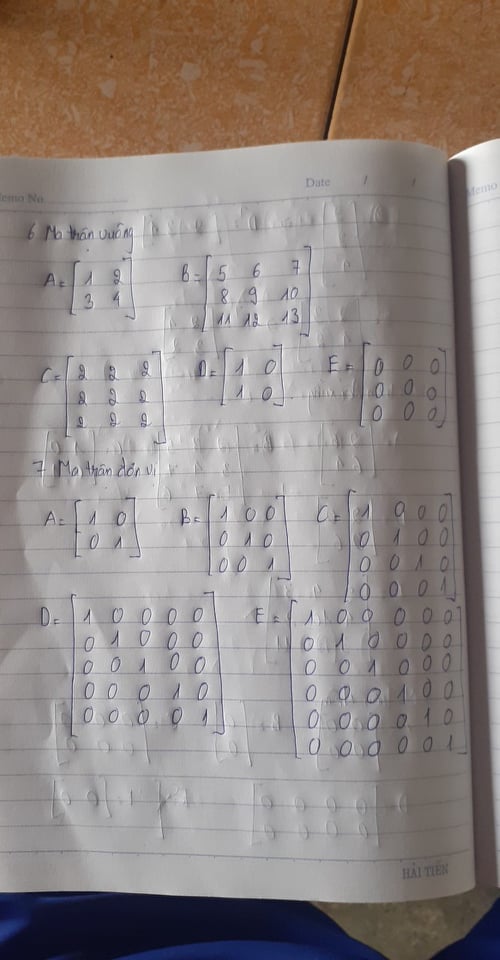 Memo No
Date / /
Memo
6 Ma trận vuông
A = [1 2
3 4]
B = [5 6 7
8 9 10
11 12 13]
C = [2 2 2
2 2 2
2 2 2]
D = [1 0
1 0]
E = [0 0 0
0 0 0
0 0 0]
7 Ma trận đơn vị
A = [1 0
0 1]
B = [1 0 0
0 1 0
0 0 1]
C = [1 0 0 0
0 1 0 0
0 0 1 0
0 0 0 1]
D = [1 0 0 0 0
0 1 0 0 0
0 0 1 0 0
0 0 0 1 0
0 0 0 0 1]
E = [1 0 0 0 0 0
0 1 0 0 0 0
0 0 1 0 0 0
0 0 0 1 0 0
0 0 0 0 1 0
0 0 0 0 0 1]
HẢI TIẾN